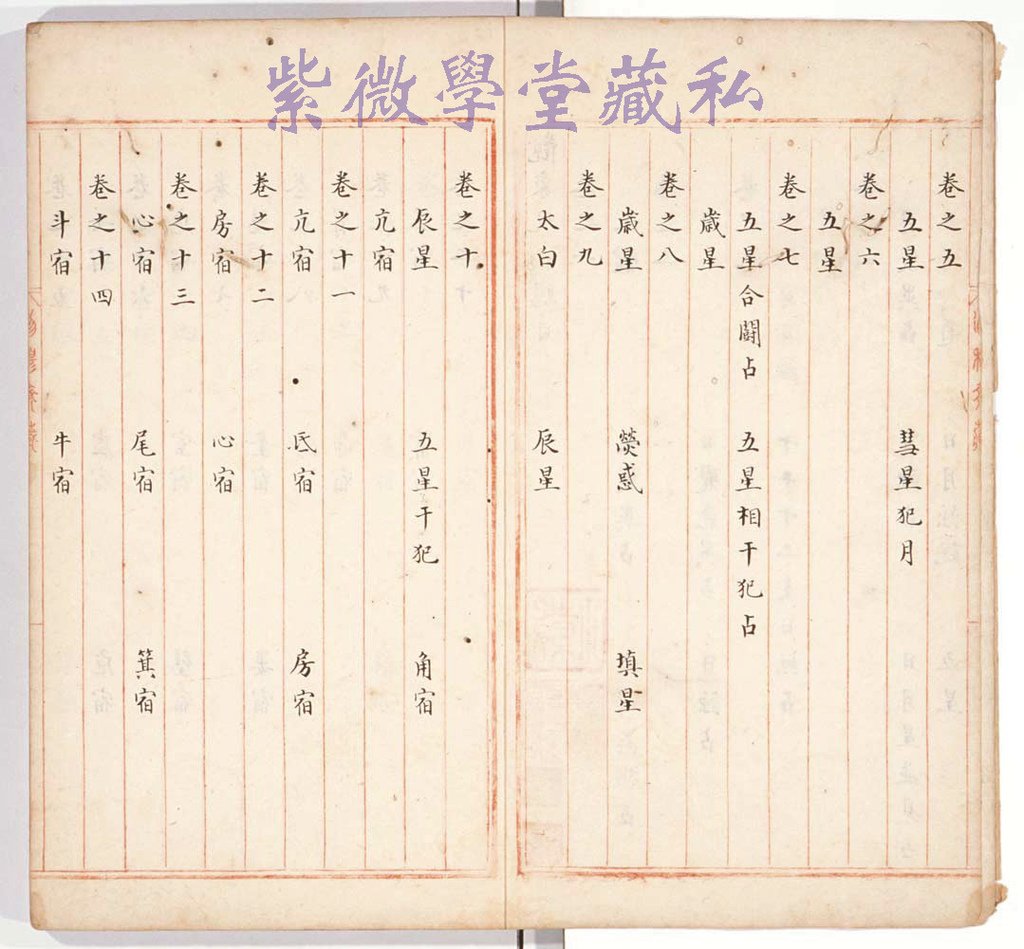 紫微學堂藏私
卷之五
五星 彗星犯月
卷之六
五星
卷之七
五星合鬭占 五星相干犯占
歲星
卷之八
歲星 熒惑 填星
卷之九
太白 辰星
卷之十
辰星 五星干犯 角宿
亢宿
卷之十一
亢宿 氐宿 房宿
卷之十二
房宿 心宿
卷之十三
心宿 尾宿 箕宿
卷之十四
斗宿 牛宿